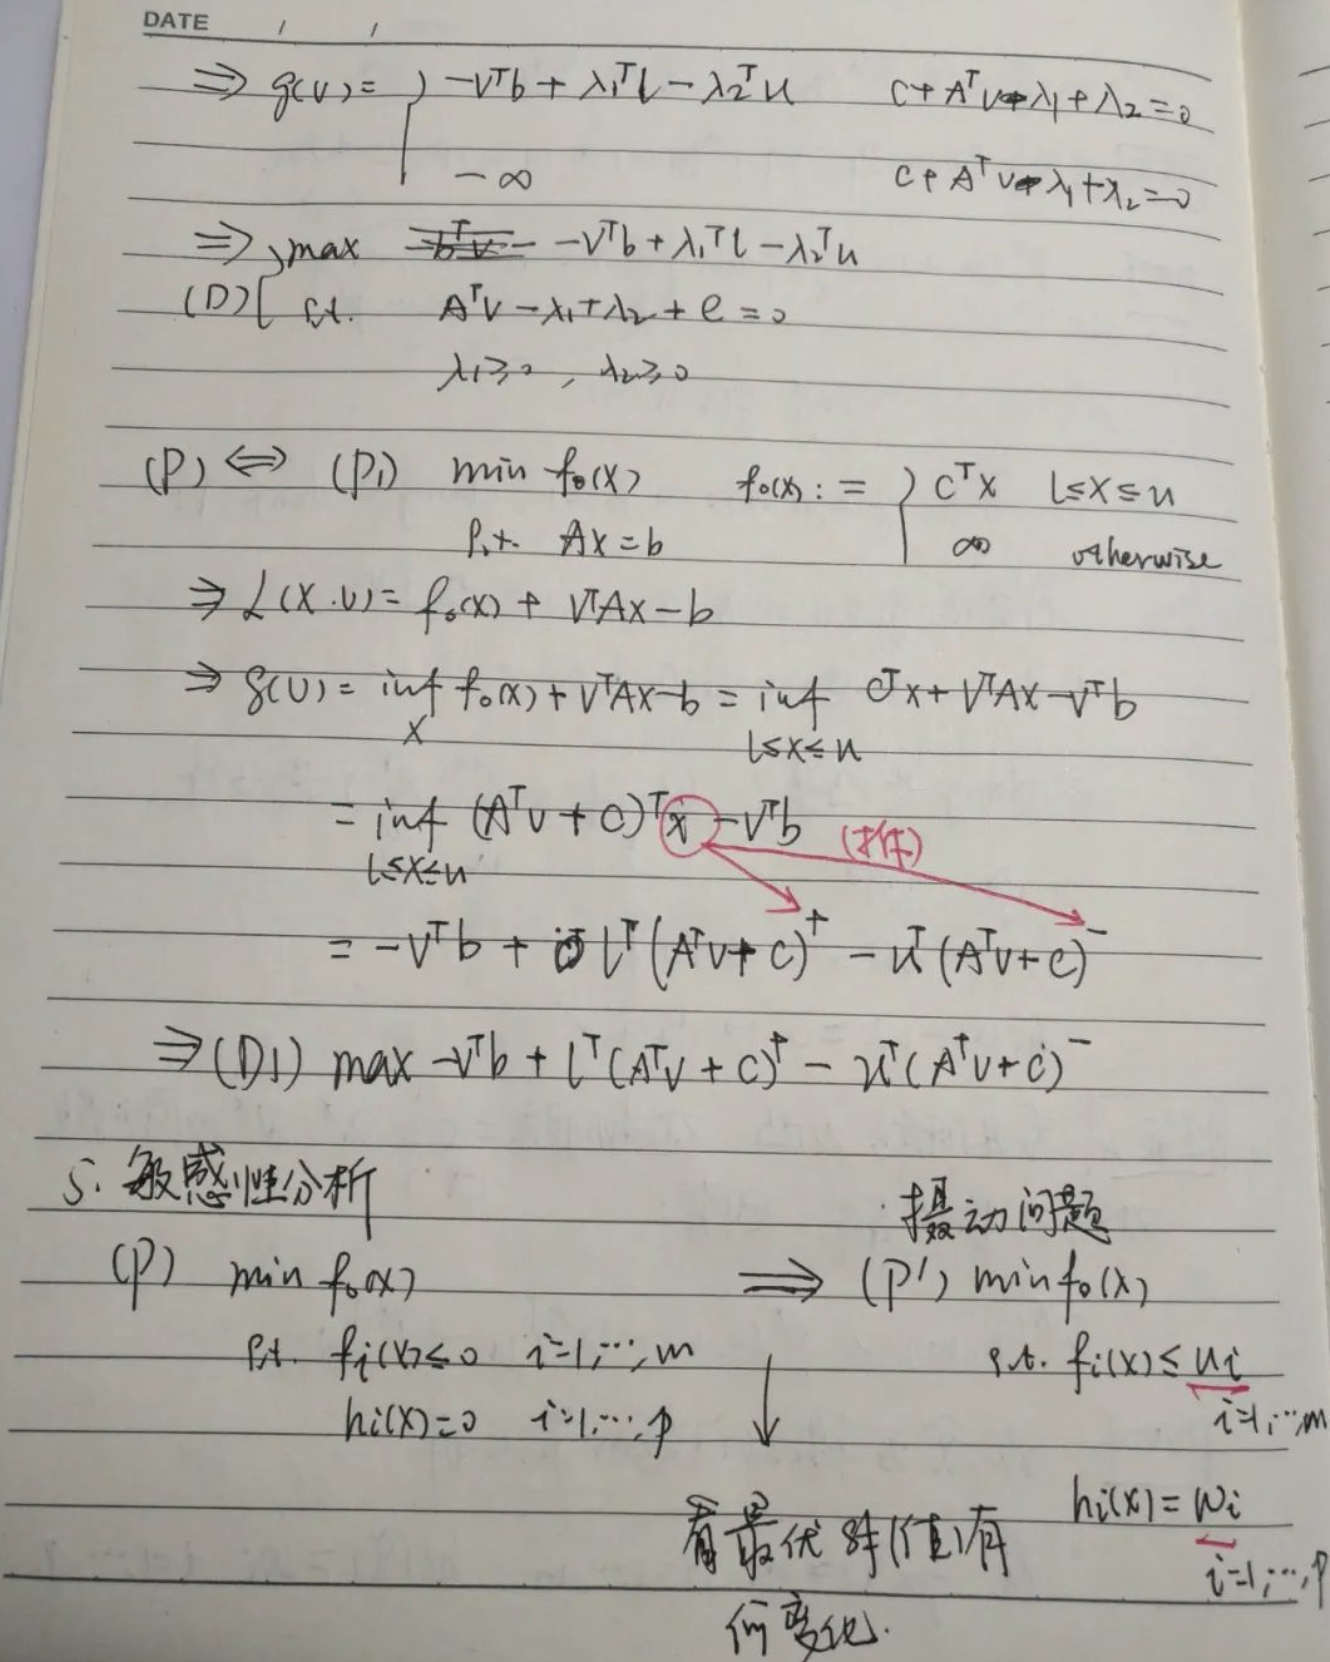 DATE / /
⇒ g(v) = { -vᵀb + λ₁ᵀl - λ₂ᵀu  c + Aᵀv - λ₁ + λ₂ = 0
-∞  c + Aᵀv - λ₁ + λ₂ = 0
⇒ max -vᵀb + λ₁ᵀl - λ₂ᵀu
(D) s.t. Aᵀv - λ₁ + λ₂ + c = 0
λ₁ ≥ 0, λ₂ ≥ 0
(P) ⇔ (P1) min f₀(x)  f₀(x) := { cᵀx  l≤x≤u
s.t. Ax = b  ∞  otherwise
⇒ L(x.v) = f₀(x) + vᵀAx - b
⇒ g(v) = inf f₀(x) + vᵀAx - b = inf cᵀx + vᵀAx - vᵀb
x  l≤x≤u
= inf (Aᵀv + c)ᵀx - vᵀb
l≤x≤u
= -vᵀb + lᵀ(Aᵀv + c)⁺ - uᵀ(Aᵀv + c)⁻
⇒ (D1) max -vᵀb + lᵀ(Aᵀv + c)⁺ - uᵀ(Aᵀv + c)⁻
5. 敏感性分析  摄动问题
(P) min f₀(x) ⇒ (P') min f₀(x)
s.t. fi(x) ≤ 0  i=1,…,m  s.t. fi(x) ≤ ui
i=1,…m
hi(x) = 0  i=1,…,p
hi(x) = wi
i=1,…,p
看最优解(值)有
何变化.